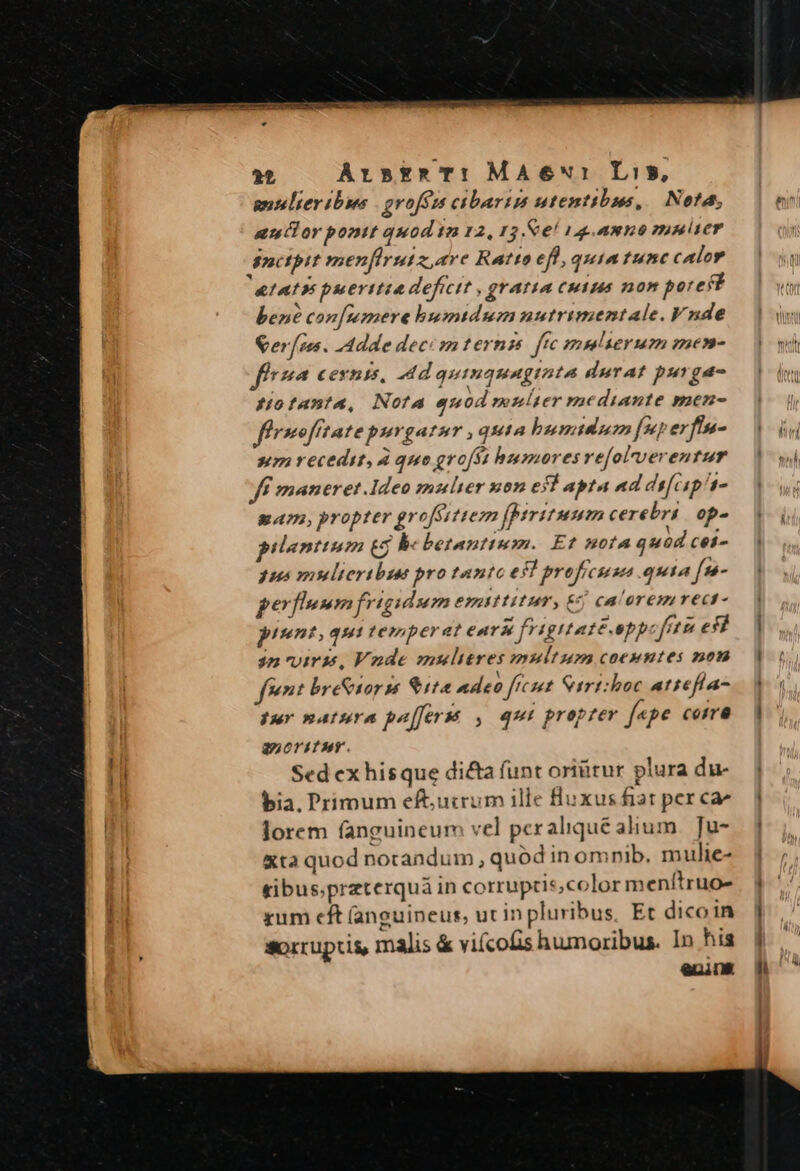 22 ALBERTI MAGNI LIB,
mulieribus grossis cibariis utentibus, Nota,
auctor ponit quod in 12, 13. vel 14. anno mulier
incipit menstruizare Ratio est, quia tunc calor
ætatis pueritia deficit, gratia cuius non potest
bene consumere humidum nutrimentale. Vnde
versus. Adde decem ternis sic mulierum men-
strua cernis, Ad quinquaginta durat purga-
tio tanta, Nota quòd mulier mediante men-
struositate purgatur, quia humidum superflu-
um recedit, à quo grossi humores resolverentur
si maneret. Ideo mulier non est apta ad discipli-
nam, propter grossitiem spirituum cerebri op-
pilantium & hebetantium. Et nota quòd coi-
tus mulieribus pro tanto est proficuus quia su-
perfluum frigidum emittitur, & calorem reci-
piunt, qui temperat earũ frigitatẽ. oppositũ est
in viris, Vnde mulieres multum coeuntes non
sunt brevioris vitæ adeo sicut viri: hoc attesta-
tur natura passeris, qui propter sæpe coire
moritur.
Sed ex hisque dicta sunt oriũtur plura du-
bia. Primum est, utrum ille fluxus fiat per ca-
lorem sanguineum vel per aliquẽ alium Ju-
xta quod notandum, quòd in omnib. mulie-
ribus, præterquã in corruptis, color menstruo-
rum est sanguineus, ut in pluribus. Et dico in
corruptis, malis & viscosis humoribus. In his
enim